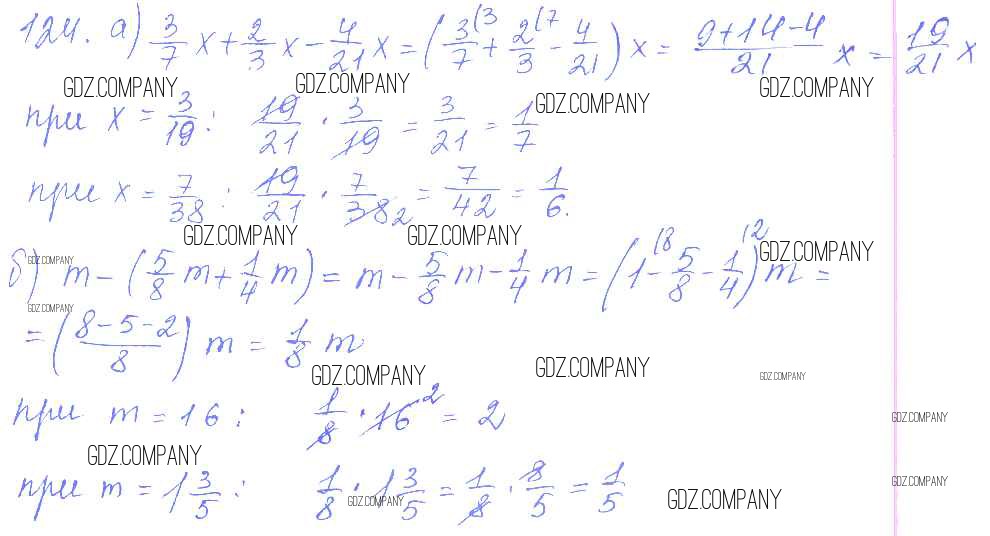 124. а) 3/7 x + 2/3 x − 4/21 x = (3/7 (3 + 2/3 (7 − 4/21) x = (9+14−4)/21 x = 19/21 x
GDZ.COMPANY GDZ.COMPANY GDZ.COMPANY GDZ.COMPANY
при x = 3/19 : 19/21 · 3/19 = 3/21 = 1/7
при x = 7/38 : 19/21 · 7/38 2 = 7/42 = 1/6.
GDZ.COMPANY GDZ.COMPANY GDZ.COMPANY GDZ.COMPANY
б) m − (5/8 m + 1/4 m) = m − 5/8 m − 1/4 m = (1 (8 − 5/8 − 1/4 (2) m =
GDZ.COMPANY
= ((8−5−2)/8) m = 1/8 m
GDZ.COMPANY GDZ.COMPANY GDZ.COMPANY
при m = 16 : 1/8 · 16 2 = 2
GDZ.COMPANY GDZ.COMPANY
при m = 1 3/5 : 1/8 · 1 3/5 = 1/8 · 8/5 = 1/5
GDZ.COMPANY GDZ.COMPANY GDZ.COMPANY